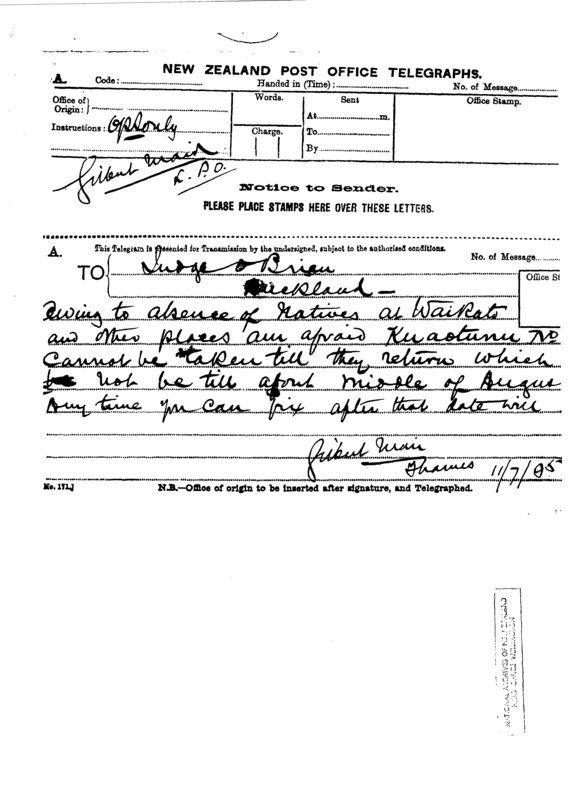 NEW ZEALAND POST OFFICE TELEGRAPHS.
A. Code: Handed in (Time): No. of Message
Office of Origin: Words. Sent Office Stamp.
At m.
Instructions: Only Charge. To
By
Gilbert Mair
L. P. O.
Notice to Sender.
PLEASE PLACE STAMPS HERE OVER THESE LETTERS.
A. This Telegram is presented for Transmission by the undersigned, subject to the authorised conditions. No. of Message
TO Judge O'Brien Office St
Auckland —
Owing to absence of Natives at Waikato
and other places am afraid Kuaotunu No
Cannot be taken till they return which
not be till about middle of Augus
Any time you can fix after that date will
Gilbert Mair
Thames 11/7/95
No. 171.] N.B.—Office of origin to be inserted after signature, and Telegraphed.
NATIONAL ARCHIVES OF NEW ZEALAND
WELLINGTON